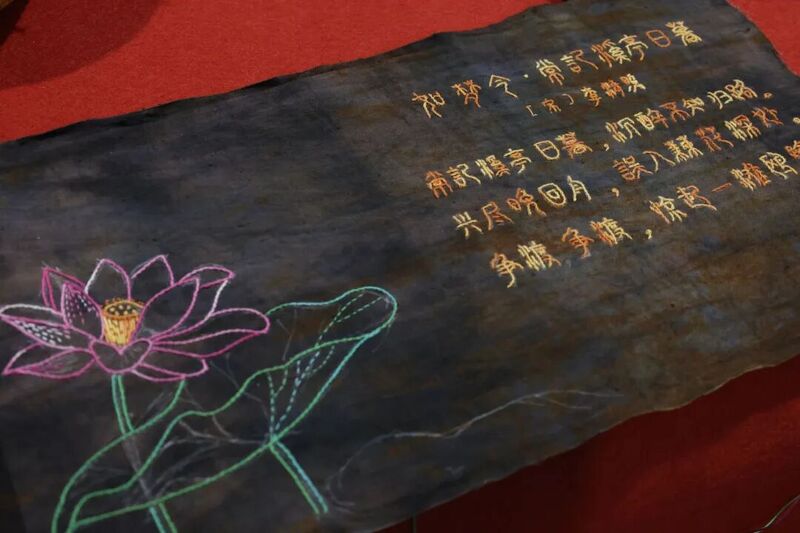 如梦令·常記溪亭日暮
[宋]李清照
常記溪亭日暮，沉醉不知归路。
兴尽晚回舟，誤入藕花深处。
争渡，争渡，惊起一滩鸥